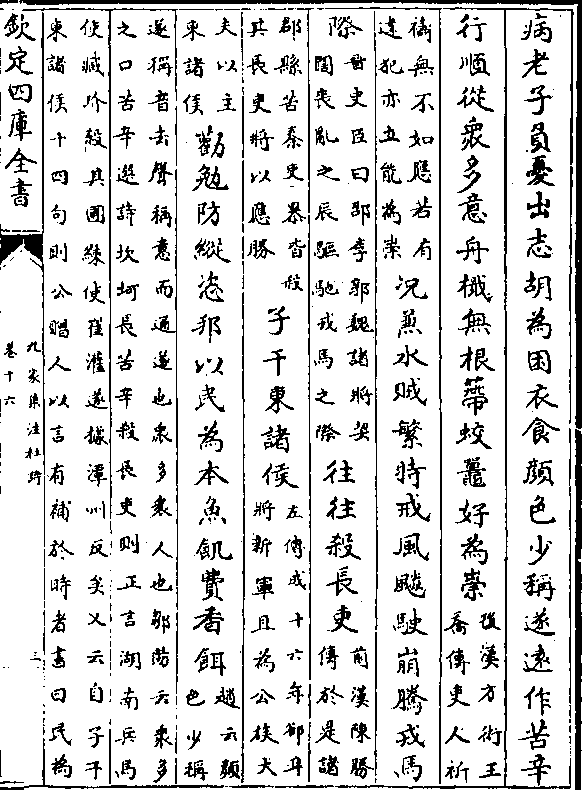 病老子負憂出志胡為困衣食顏色少稱遂遠作苦辛
行順從衆多意舟檝無根蔕蛟鼉好為祟後漢方術王
喬傳吏人祈
禱無不如應若有
違犯亦立能為祟況兼水賊繁特戒風飈駛崩騰戎馬
際晉史臣曰邵李郭魏諸將契
闊喪亂之辰驅馳戎馬之際往往殺長吏前漢陳勝
傳於是諸
郡縣苦秦吏暴皆殺
其長吏將以應勝子干東諸侯左傳成十六年郤犨
將新軍且為公族大
夫以主
東諸侯勸勉防縱恣邦以民為本魚飢費香餌趙云顏
色少稱
遂稱音去聲稱意而通遂也衆多衆人也鄒陽云衆多
之口苦辛選詩坎坷長苦辛殺長吏則正言湖南兵馬
使臧玠殺其團練使崔灌遂據潭州反矣又云自子干
東諸侯十四句則公贈人以言有補於時者書曰民為
欽定四庫全書
九家集注杜詩
卷十六
三